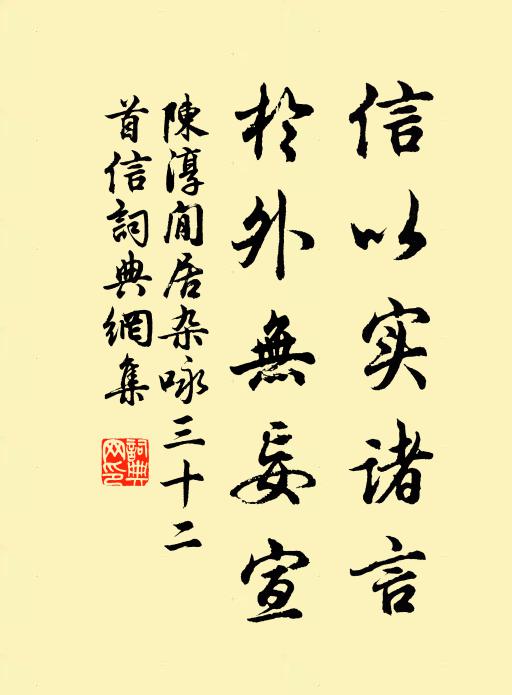 信以实诸言
於外無妄宣
陳淳閒居杂咏三十二
首信詞典網集
詞典网印